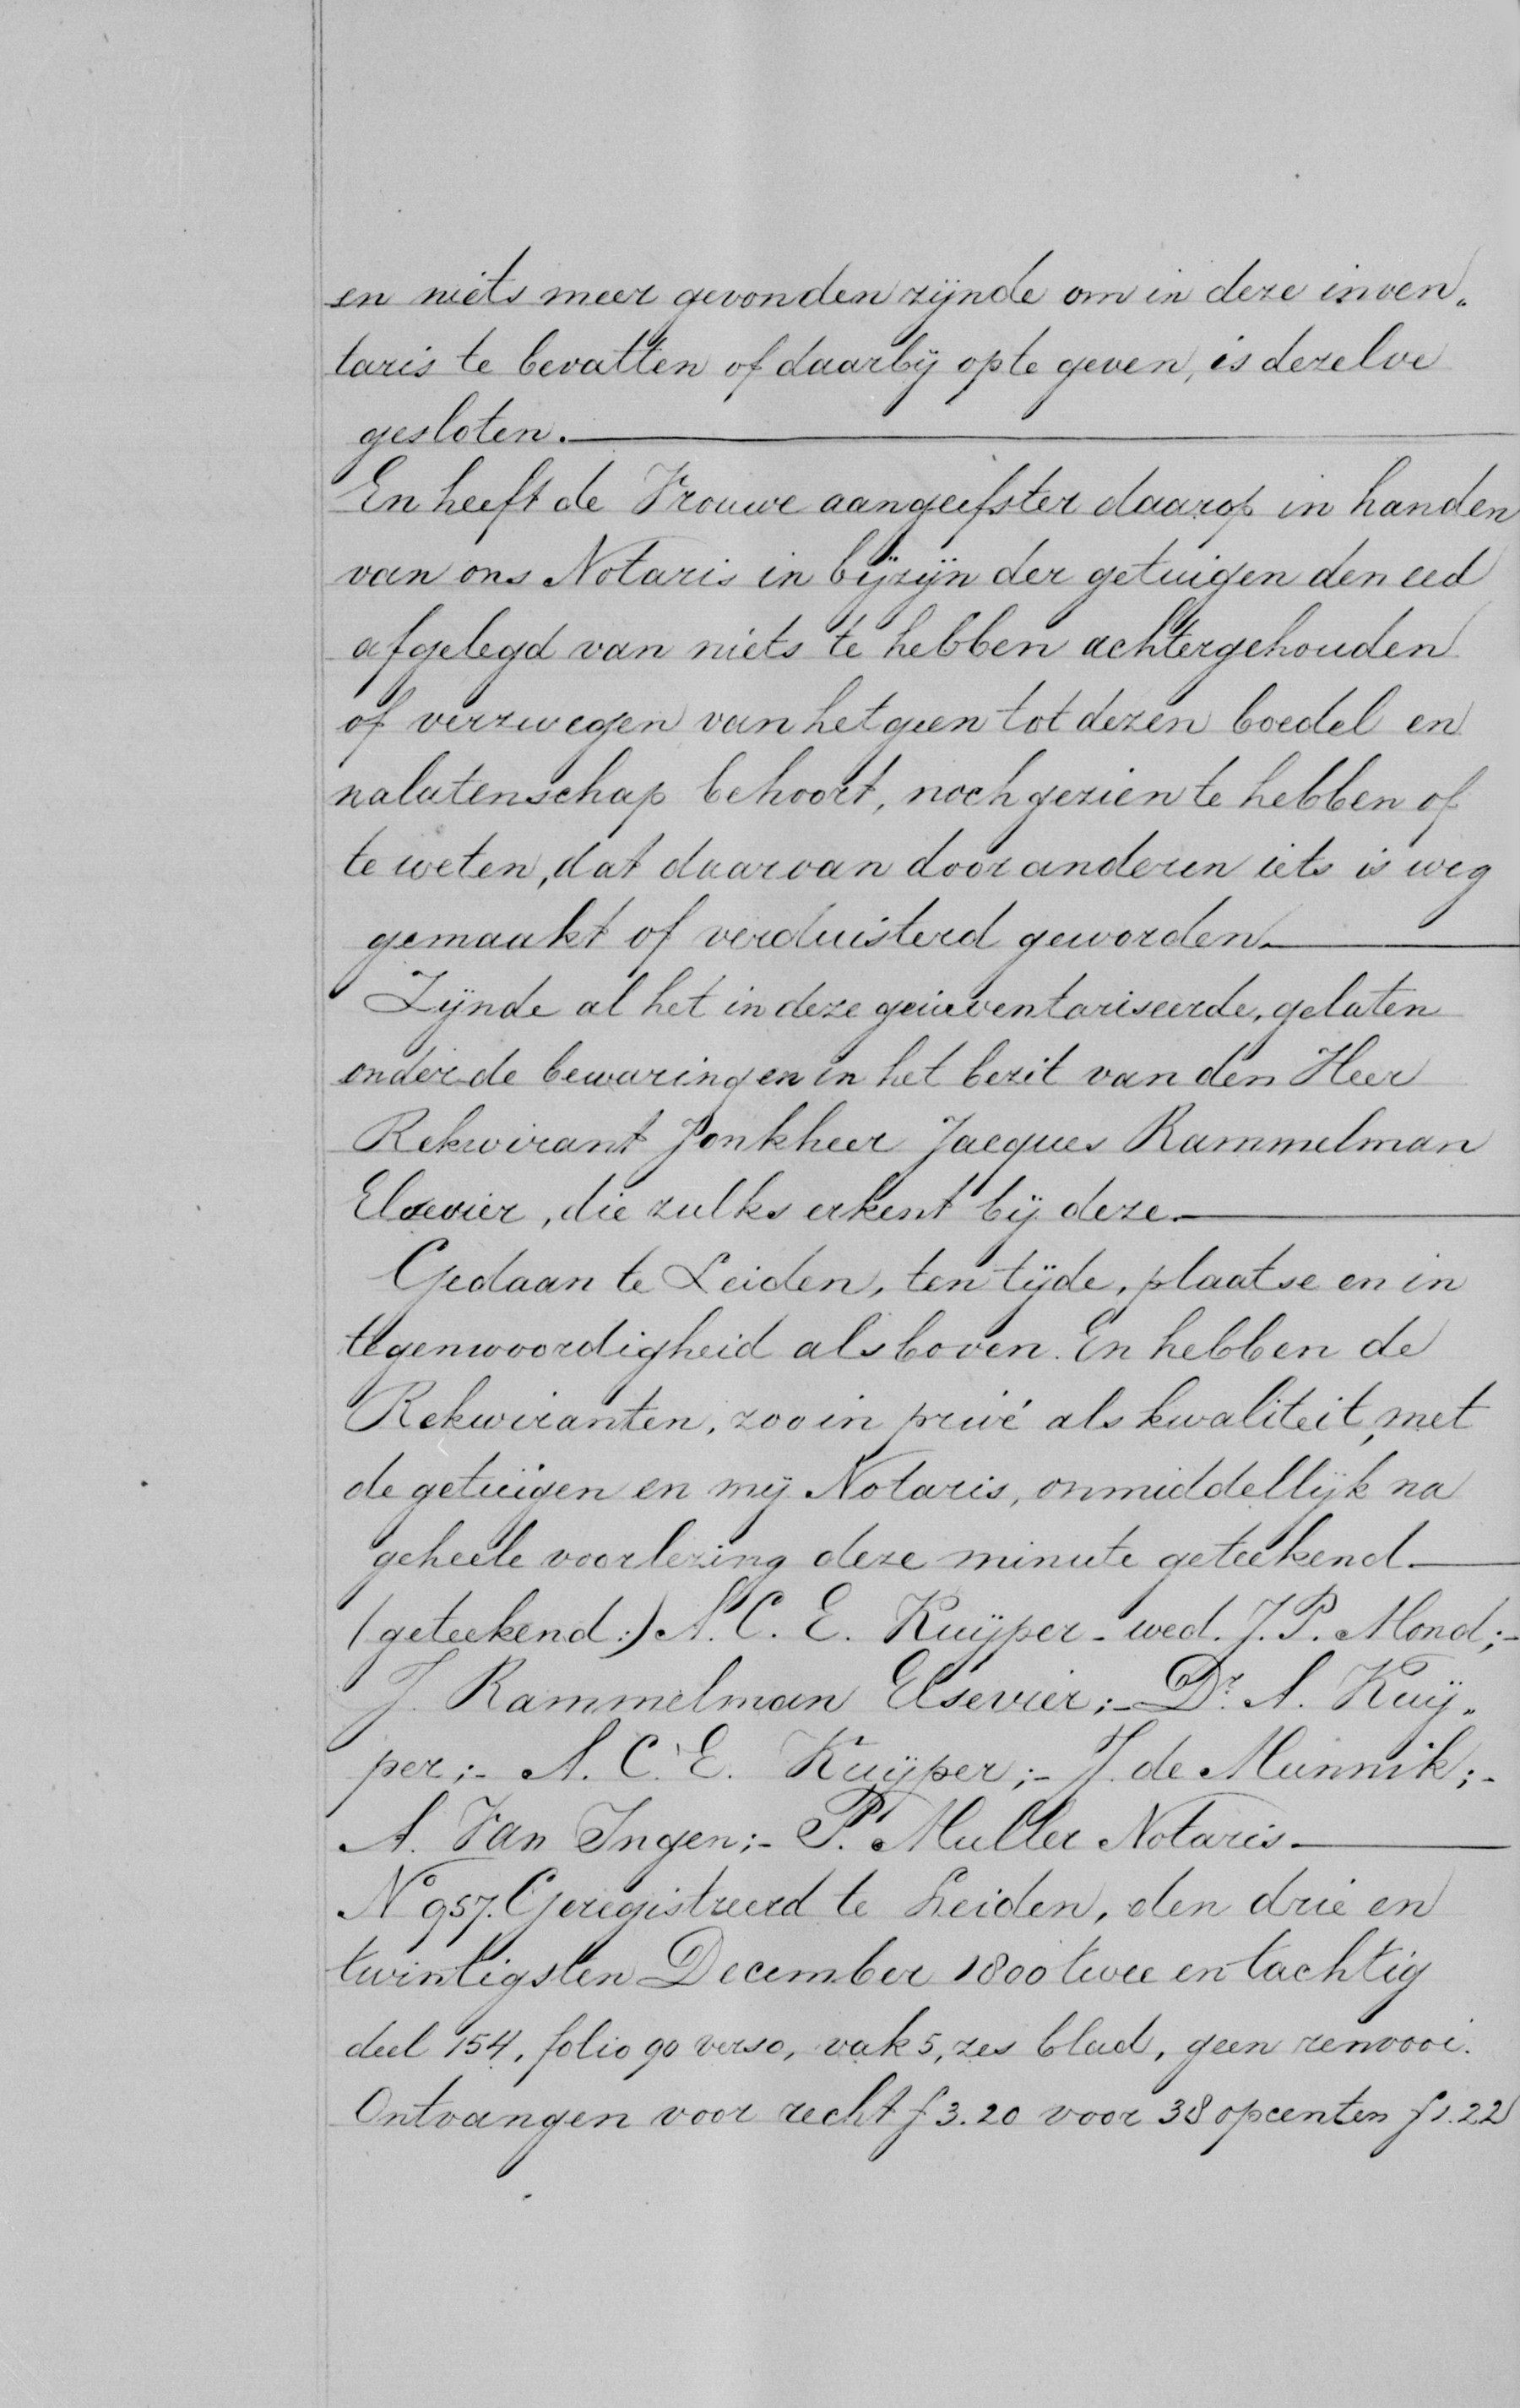 en niets meer gevonden zijnde om in deze inven„
taris te bevatten of daarbij op te geven, is dezelve
gesloten.
En heeft de Vrouwe aangeefster daarop in handen
van ons Notaris in bijzijn der getuigen den eed
afgelegd van niets te hebben achtergehouden
of verzwegen van hetgeen tot dezen boedel en
nalatenschap behoort, noch gezien te hebben of
te weten, dat daarvan door anderen iets is weg
gemaakt of verduisterd geworden.
Zijnde al het in deze geinventariseerde, gelaten
onder de bewaring en in het bezit van den Heer
Rekwirant Jonkheer Jacques Rammelman
Elsevier, die zulks erkent bij deze.
Gedaan te Leiden, ten tijde, plaatse en in
tegenwoordigheid als boven. En hebben de
Rekwiranten, zoo in privé als kwaliteit, met
de getuigen en mij Notaris, onmiddellijk na
geheele voorlezing deze minute geteekend.
(geteekend:) A. C. E. Kuijper - wed. J. P. Mond;-
J. Rammelman Elsevier;- Dr. A. Kuij„
per;- A. C. E. Kuijper;- J. de Munnik;-
A. Van Ingen;- P. Muller Notaris.
No 957. Geregistreerd te Leiden, den drie en
twintigsten December 1800 twee en tachtig
deel 154, folio 90 verso, vak 5, zes blad, geen renvooi.
Ontvangen voor recht f 3.20 voor 38 opcenten f 1.22